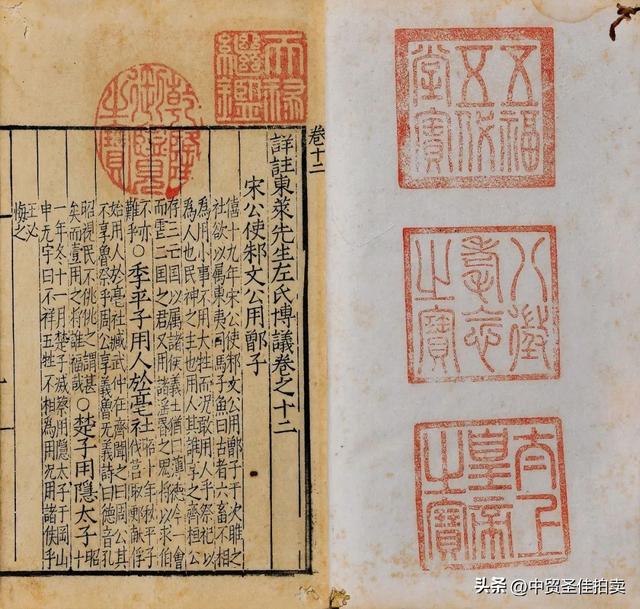 五福五代堂寶
八徵耄念之寶
太上皇帝之寶
天祿繼鑑
乾隆御覽之寶
卷十二
詳註東萊先生左氏博議卷之十二
宋公使邾文公用鄫子
僖十九年宋公使邾文公用鄫子于次睢之
社欲以屬東夷司馬子魚曰古者六畜不相
為用小事不用大牲而況敢用人乎祭祀以
為人也民神之主也用人其誰享之齊桓公
存三亡國以屬諸侯義士猶曰薄德今一會
而虐二国之君又用諸淫昏之鬼將以求伯
不亦難乎○季平子用人於亳社昭十年秋平子伐莒取郠献俘
始用人於亳社臧武仲在齊聞之曰周公其
不享魯祭乎周公享義魯无義詩曰德音孔
昭視民不佻佻之謂甚
矣而壹用之將誰福哉○楚子用隱太子昭十
一年冬十一月楚子滅蔡用隱太子于岡山
申无宇曰不祥五牲不相為用况用諸侯乎
王必悔之
头条 @中贸圣佳拍卖